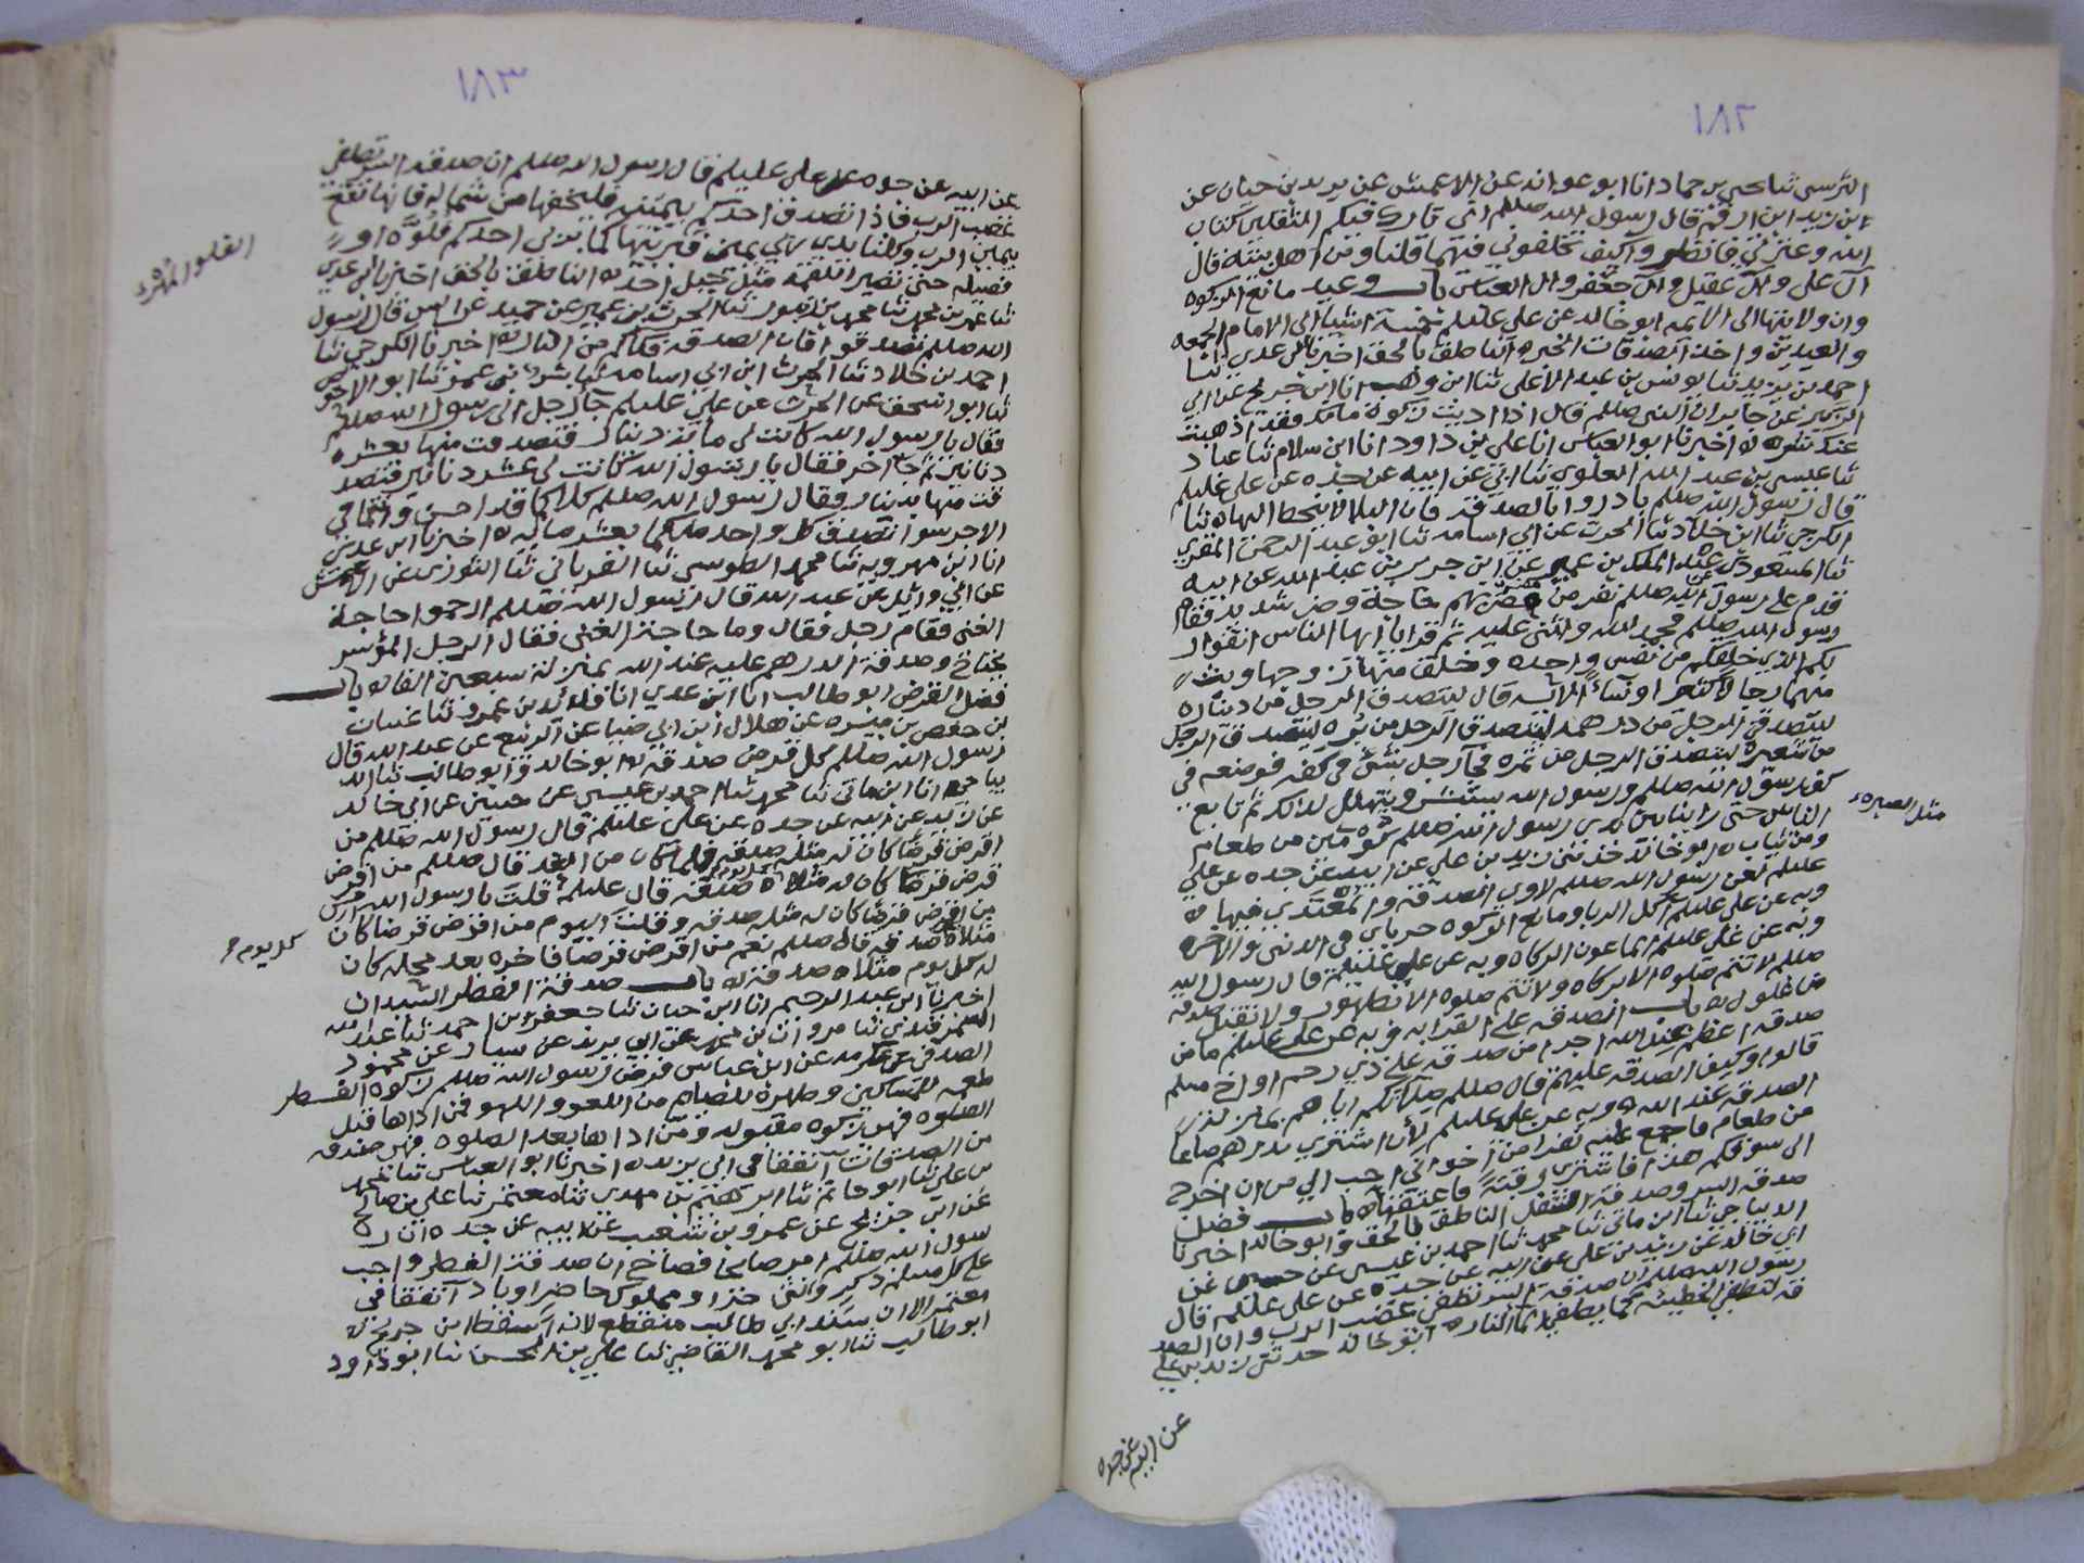 ١٨٢
النرسي ثنا يحيى بن حماد انا ابو عوانه عن الاعمش عن يزيد بن حيان عن
زيد ابن ارقم قال رسول الله صللم اني تارك فيكم الثقلين كتاب
الله وعترتي فانظروا كيف تخلفوني فيهما قلنا ومن اهل بيته قال
آل علي وآل عقيل وآل جعفر وال العباس باب وعيد مانع الزكوه
وان ولايتها الى الائمه ابو خالد عن علي عليلم خمسة اشيا الى الامام الجمعه
والعيدين واخذ الصدقات الخبر ه الناطق بالحق اخبرنا ابن عدي انا
احمد بن يزيد ثنا يونس بن عبد الاعلى ثنا ابن وهب انا ابن جريج عن ابي
الزبير عن جابر ان النبي صللم قال اذا اديت زكوة مالك فقد اذهبت
عنك شره ه اخبرنا ابو العباس انا علي بن داود انا ابن سلام ثنا عباد
ثنا عيسى بن عبد الله العلوي ثنا ابي عن ابيه عن جده عن علي عليلم
قال رسول الله صللم بادروا بالصدقه فان البلا لا يتخطاها ه ثنا
الكرجي ثنا ابن خلاد ثنا الحرث عن ابي اسامه ثنا ابو عبد الرحمن المقري
ثنا المسعودي عن عبد الملك بن عمير عن ابن جرير بن عبد الله عن ابيه
قدم على رسول الله صللم نفر من مضر بهم حاجة وضر شديد فقام
رسول الله صللم فحمد الله واثنى عليه ثم قرا يا ايها الناس اتقوا ر
بكم الذي خلقكم من نفس واحده وخلق منها زوجها وبث
منهما رجالا كثيرا ونساءً الايه قال ليتصدق الرجل من ديناره
ليتصدق الرجل من درهمه ليتصدق الرجل من بره ليتصدق الرجل
من شعيره ليتصدق الرجل من تمره فجآ رجل بشئ في كفه فوضعه في
كف رسول الله صللم ورسول الله يستبشر ويتهلل لذلك ثم تتابع
الناس حتى راينا بين يدي رسول الله صللم كومين من طعام
مثل الصبره
ومن ثياب ه ابو خالد حدثني زيد بن علي عن ابيه عن جده عن علي
عليلم لعن رسول الله صللم لاوي الصدقه والمعتدي فيها ه
وبه عن علي عليلم آكل الربا ومانع الزكوه حرباي في الدنيا والاخره
وبه عن علي عليلم الماعون الزكاه وبه عن علي عليلم قال رسول الله
صللم لا تتم صلوه الا بزكاه ولا تتم صلوه الا بطهور ولا تقبل صدقه
من غلول ه باب الصدقه على القرابه وبه عن علي عليلم ما من
صدقه اعظم عند الله اجرا من صدقه على ذي رحم او اخ مسلم
قالوا وكيف الصدقه عليهم قال صللم صلاتكم اياهم بمنزلة
الصدقه عند الله ه وبه عن علي عليلم لأن اشتري بدرهم صاعا
من طعام فاجمع عليه نفرا من اخواني احب الي من ان اخرج
الى سوقكم هذا فاشتري رقبةً فاعتقها ه باب فضل
صدقه السر وصدقه النفل الناطق بالحق وابو خالد اخبرنا
الديباجي ثنا ابن ماتي ثنا محمد ثنا احمد بن عيسى عن حسين عن
ابي خالد عن زيد بن علي عن ابيه عن جده عن علي عليلم قال
رسول الله صللم ان صدقه السر تطفي غضب الرب وان الصد
قه لتطفي الخطيئه كما يطفي الما النار ه ابو خالد حدثني زيد بن علي
عن ابيه عن جده
١٨٣
عن ابيه عن جده عن علي عليلم قال رسول الله صللم ان صدقه السر تطفي
غضب الرب فاذا تصدق احدكم بيمينه فليخفها من شماله فانها تقع
بيمين الرب وكلتا يدي ربي يمين فيربيها كما يربي احدكم فلوَّه او
الفلو المهره
فصيله حتى تصير اللقمه مثل جبل احد ه الناطق بالحق اخبرنا ابن عدي
ثنا عمر بن محمد ثنا محمد بن زنبور ثنا الحرث بن عمير عن حميد عن انس قال رسول
الله صللم تصدقوا فان الصدقه فكاككم من النار ه اخبرنا الكرجي ثنا
احمد بن خلاد ثنا الحرث ابن ابي اسامه ثنا بشر بن عمر ثنا ابو الاحوص
ثنا ابو اسحق عن الحرث عن علي عليلم جآ رجل الى رسول الله صللم
فقال يا رسول الله كانت لي مائة دينار فتصدقت منها بعشره
دنانير ثم جآ اخر فقال يا رسول الله كانت لي عشره دنانير فتصد
قت منها بدينار وقال رسول الله صللم كلاكما قد احسن وانتما في
الاجر سوا تصدق كل واحد منكما بعشر ماله ه اخبرنا ابن عدي
انا ابن مهرويه ثنا محمد الطوسي ثنا الفريابي ثنا الثوري عن الاعمش
عن ابي وائل عن عبد الله قال رسول الله صللم ارحموا حاجة
الغني فقام رجل فقال وما حاجة الغني فقال الرجل الموسر
يحتاج وصدقة الدرهم عليه عند الله بمنزلة سبعين الفا ه باب
فضل القرض ابو طالب انا ابن عدي انا ثنا غسان
بن حفص بن ميسره عن هلال ابن ابي ضيا عن الربيع عن عبد الله قال
رسول الله صللم كل قرض صدقه ه ابو خالد و ابو طالب ثنا الد
يباجي انا ابن ماتي ثنا محمد ثنا احمد بن عيسى عن حسين عن ابي خالد
عن زيد عن ابيه عن جده عن علي عليلم قال رسول الله صللم من
اقرض قرضا كان له مثله صدقه فلما كان من الغد قال صللم من اقرض
قرض قرضا كان له مثلاه صدقه قال عليلم قلت يا رسول الله
كل يوم
من اقرض قرضا كان له مثله صدقه وقلت اليوم من اقرض قرضا كان
مثلاه صدقه قال صللم نعم من اقرض قرضا فاخره بعد محله كان
له كل يوم مثلاه صدقه ه باب صدقة الفطر السيدان
اخبرنا ابن عبد الرحيم انا ابن حيان ثنا جعفر بن احمد ثنا عبد الله
السمرقندي ثنا مروان بن محمد عن ابي يزيد عن سيار عن محمود
الصدفي عن عكرمه عن ابن عباس فرض رسول الله صللم زكوه الفطر
طعمه للمساكين وطهرة للصيام من اللغو واللهو فمن اداها قبل
الصلوه فهو زكوه مقبوله ومن اداها بعد الصلوه فهو صدقه
من الصدقات اتفقا في ابي يزيد ه اخبرنا ابو العباس ثنا محمد
بن علي ثنا ابو حاتم ثنا ابرهيم بن مهدي ثنا معتمر ثنا علي بن صالح
عن ابن جريج عن عمرو بن شعيب عن ابيه عن جده ان ر
سول الله صللم امر صايحا فصاح ان صدقة الفطر واجب
على كل مسلم ذكر وانثى حر او مملوك حاضر او باد آ اتفقا في
معتمر الا ان سند ابي طالب منقطع لانه اسقط ابن جريج ه
ابو طالب ثنا ابو محمد القاضي ثنا علي بن الحسن ثنا ابو داود